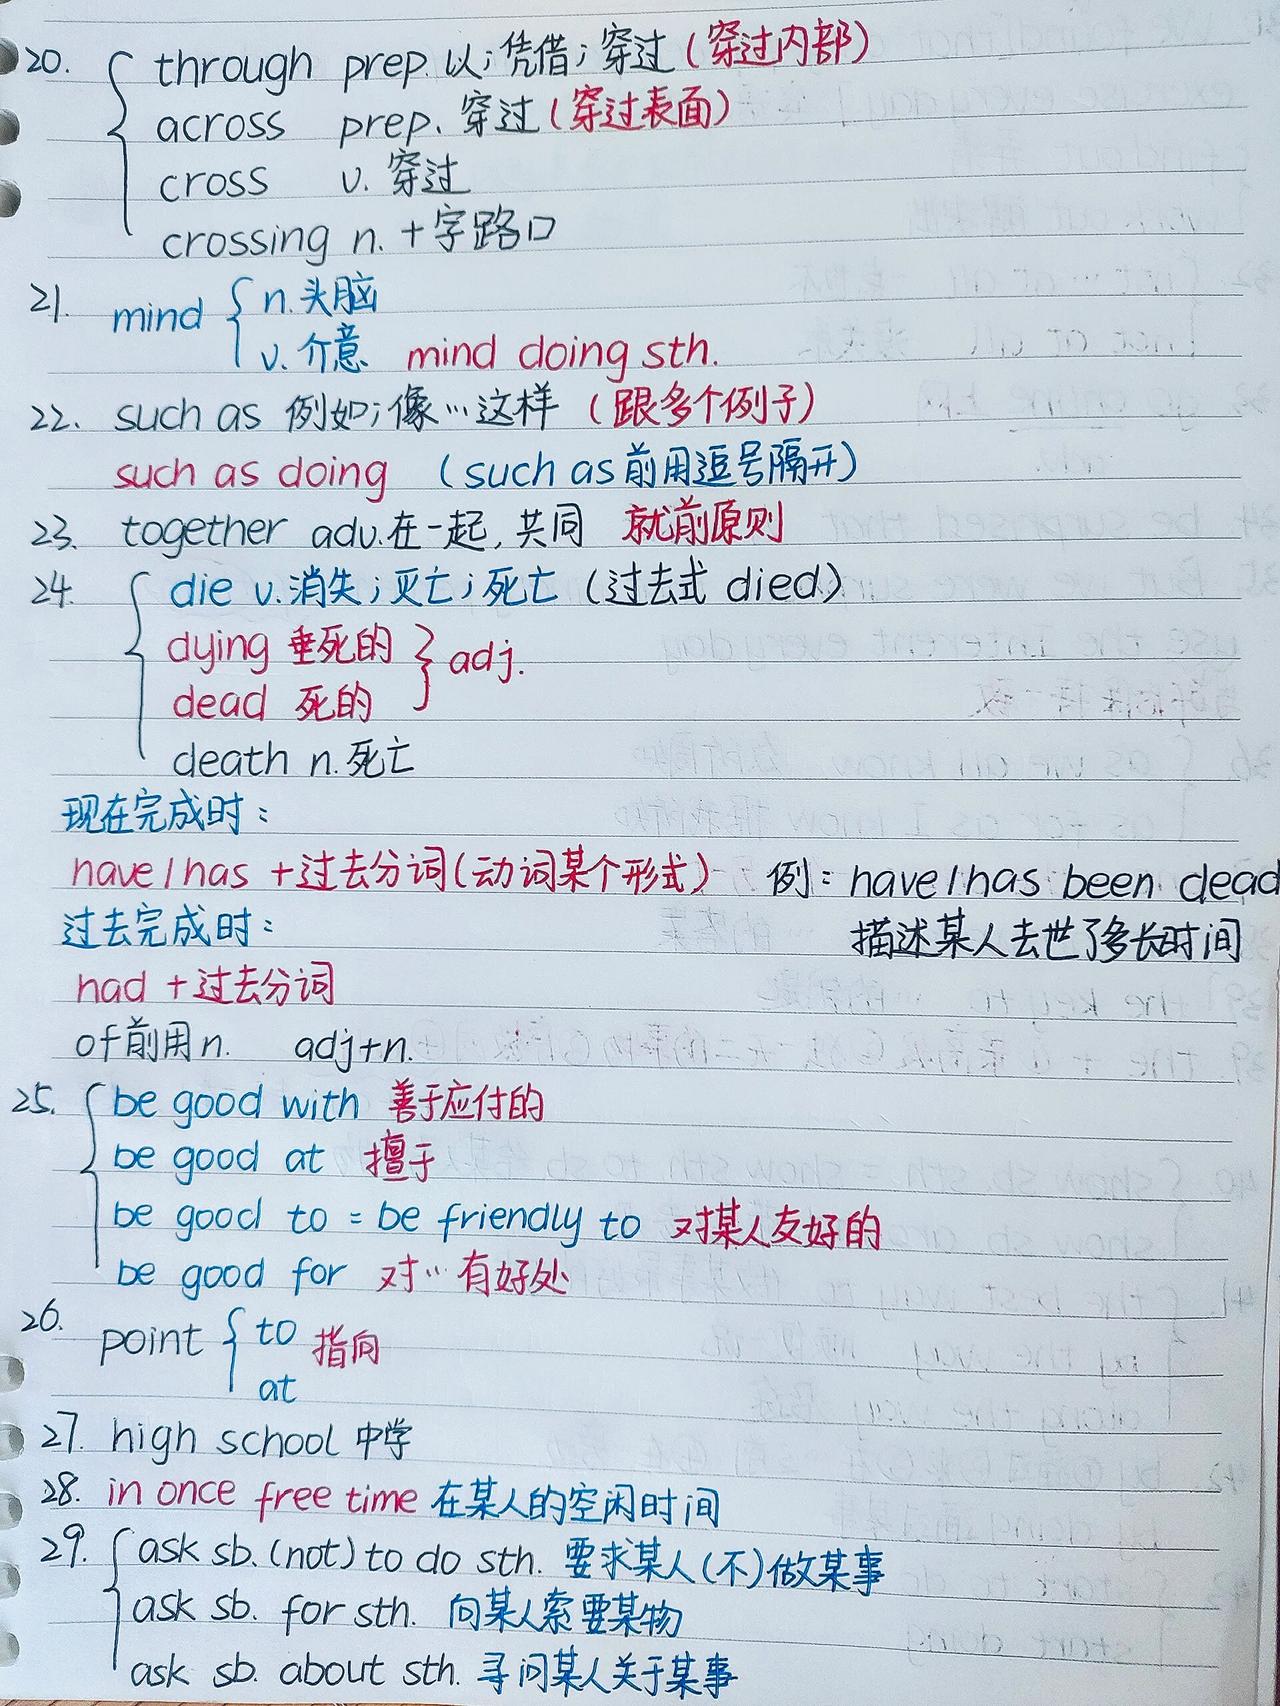 20. through prep. 以；凭借；穿过（穿过内部）
across prep. 穿过（穿过表面）
cross v. 穿过
crossing n. 十字路口
21. mind n. 头脑
v. 介意 mind doing sth.
22. such as 例如；像…这样（跟多个例子）
such as doing （such as 前用逗号隔开）
23. together adv. 在一起, 共同 就前原则
24. die v. 消失；灭亡；死亡（过去式 died）
dying 垂死的 adj.
dead 死的
death n. 死亡
现在完成时：
have/has +过去分词（动词某个形式） 例：have/has been dead
过去完成时： 描述某人去世了多长时间
had +过去分词
of前用n. adj+n.
25. be good with 善于应付的
be good at 擅于
be good to = be friendly to 对某人友好的
be good for 对…有好处
26. point to 指向
at
27. high school 中学
28. in once free time 在某人的空闲时间
29. ask sb. (not) to do sth. 要求某人(不)做某事
ask sb. for sth. 向某人索要某物
ask sb. about sth. 寻问某人关于某事